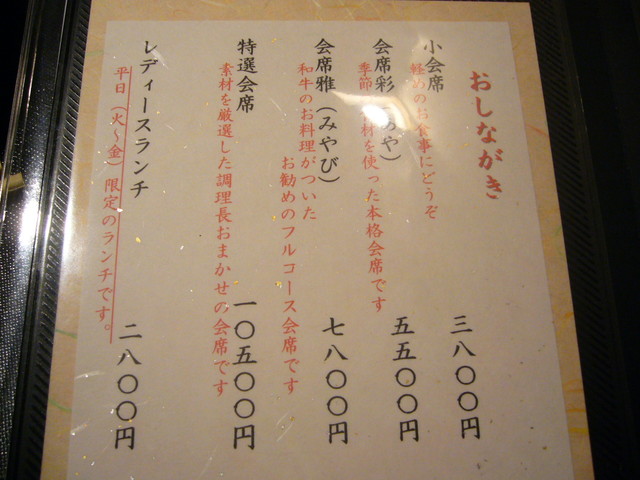 おしながき
小会席
軽めのお食事にどうぞ
三八〇〇円
会席彩 や）
季節 材を使った本格会席です
五五〇〇円
会席雅（みやび）
和牛のお料理がついた
お勧めのフルコース会席です
七八〇〇円
特選会席
素材を厳選した調理長おまかせの会席です
一〇五〇〇円
レディースランチ
平日（火～金）限定のランチです。
二八〇〇円